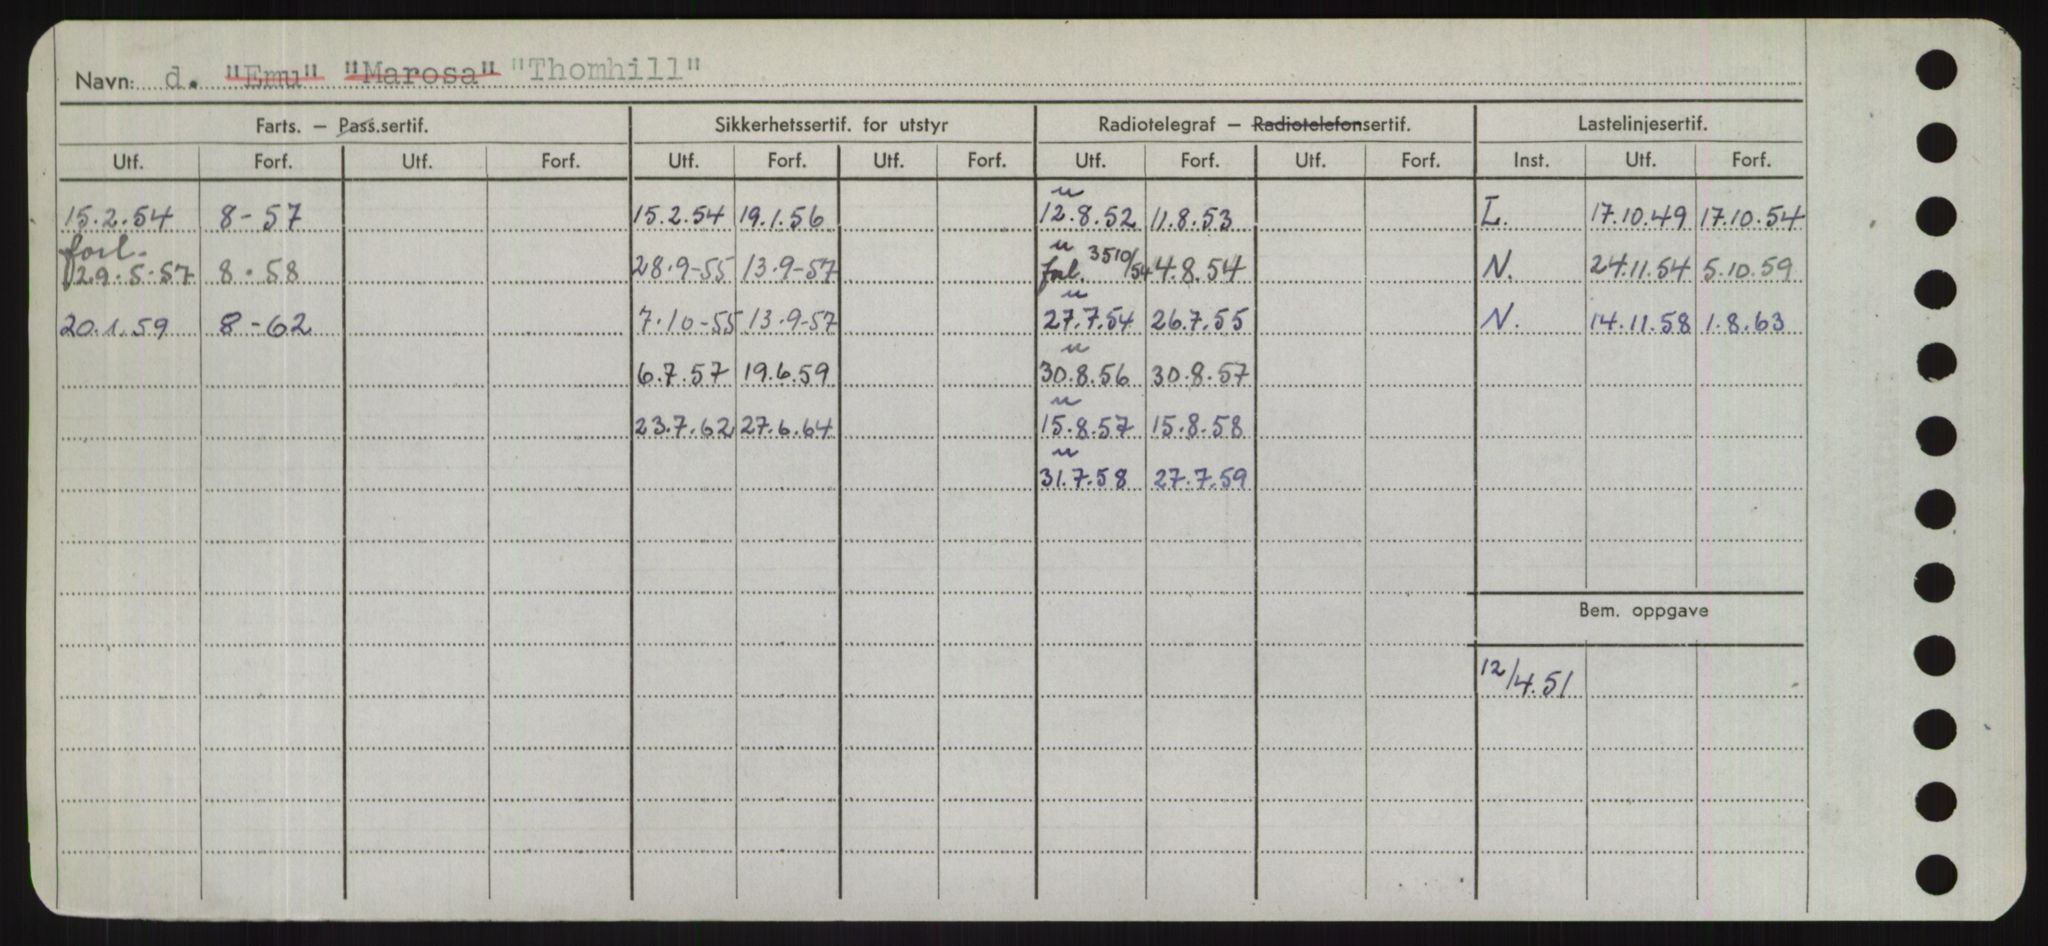 Navn: d. "Emu" "Marosa" "Thomhill"
Farts. – Pass.sertif. Sikkerhetssertif. for utstyr Radiotelegraf – Radiotelefonsertif. Lastelinjesertif.
Utf. Forf. Utf. Forf. Utf. Forf. Utf. Forf. Utf. Forf. Utf. Forf. Inst. Utf. Forf.
u
15.2.54 8-57 15.2.54 19.1.56 12.8.52 11.8.53 L. 17.10.49 17.10.54
forl. u
29.5.57 8.58 28.9-55 13.9-57 forl. 3510/54 4.8.54 N. 24.11.54 5.10.59
u
20.1.59 8-62 7.10-55 13.9-57 27.7.54 26.7.55 N. 14.11.58 1.8.63
u
6.7.57 19.6.59 30.8.56 30.8.57
u
23.7.62 27.6.64 15.8.57 15.8.58
u
31.7.58 27.7.59
Bem. oppgave
12/4.51